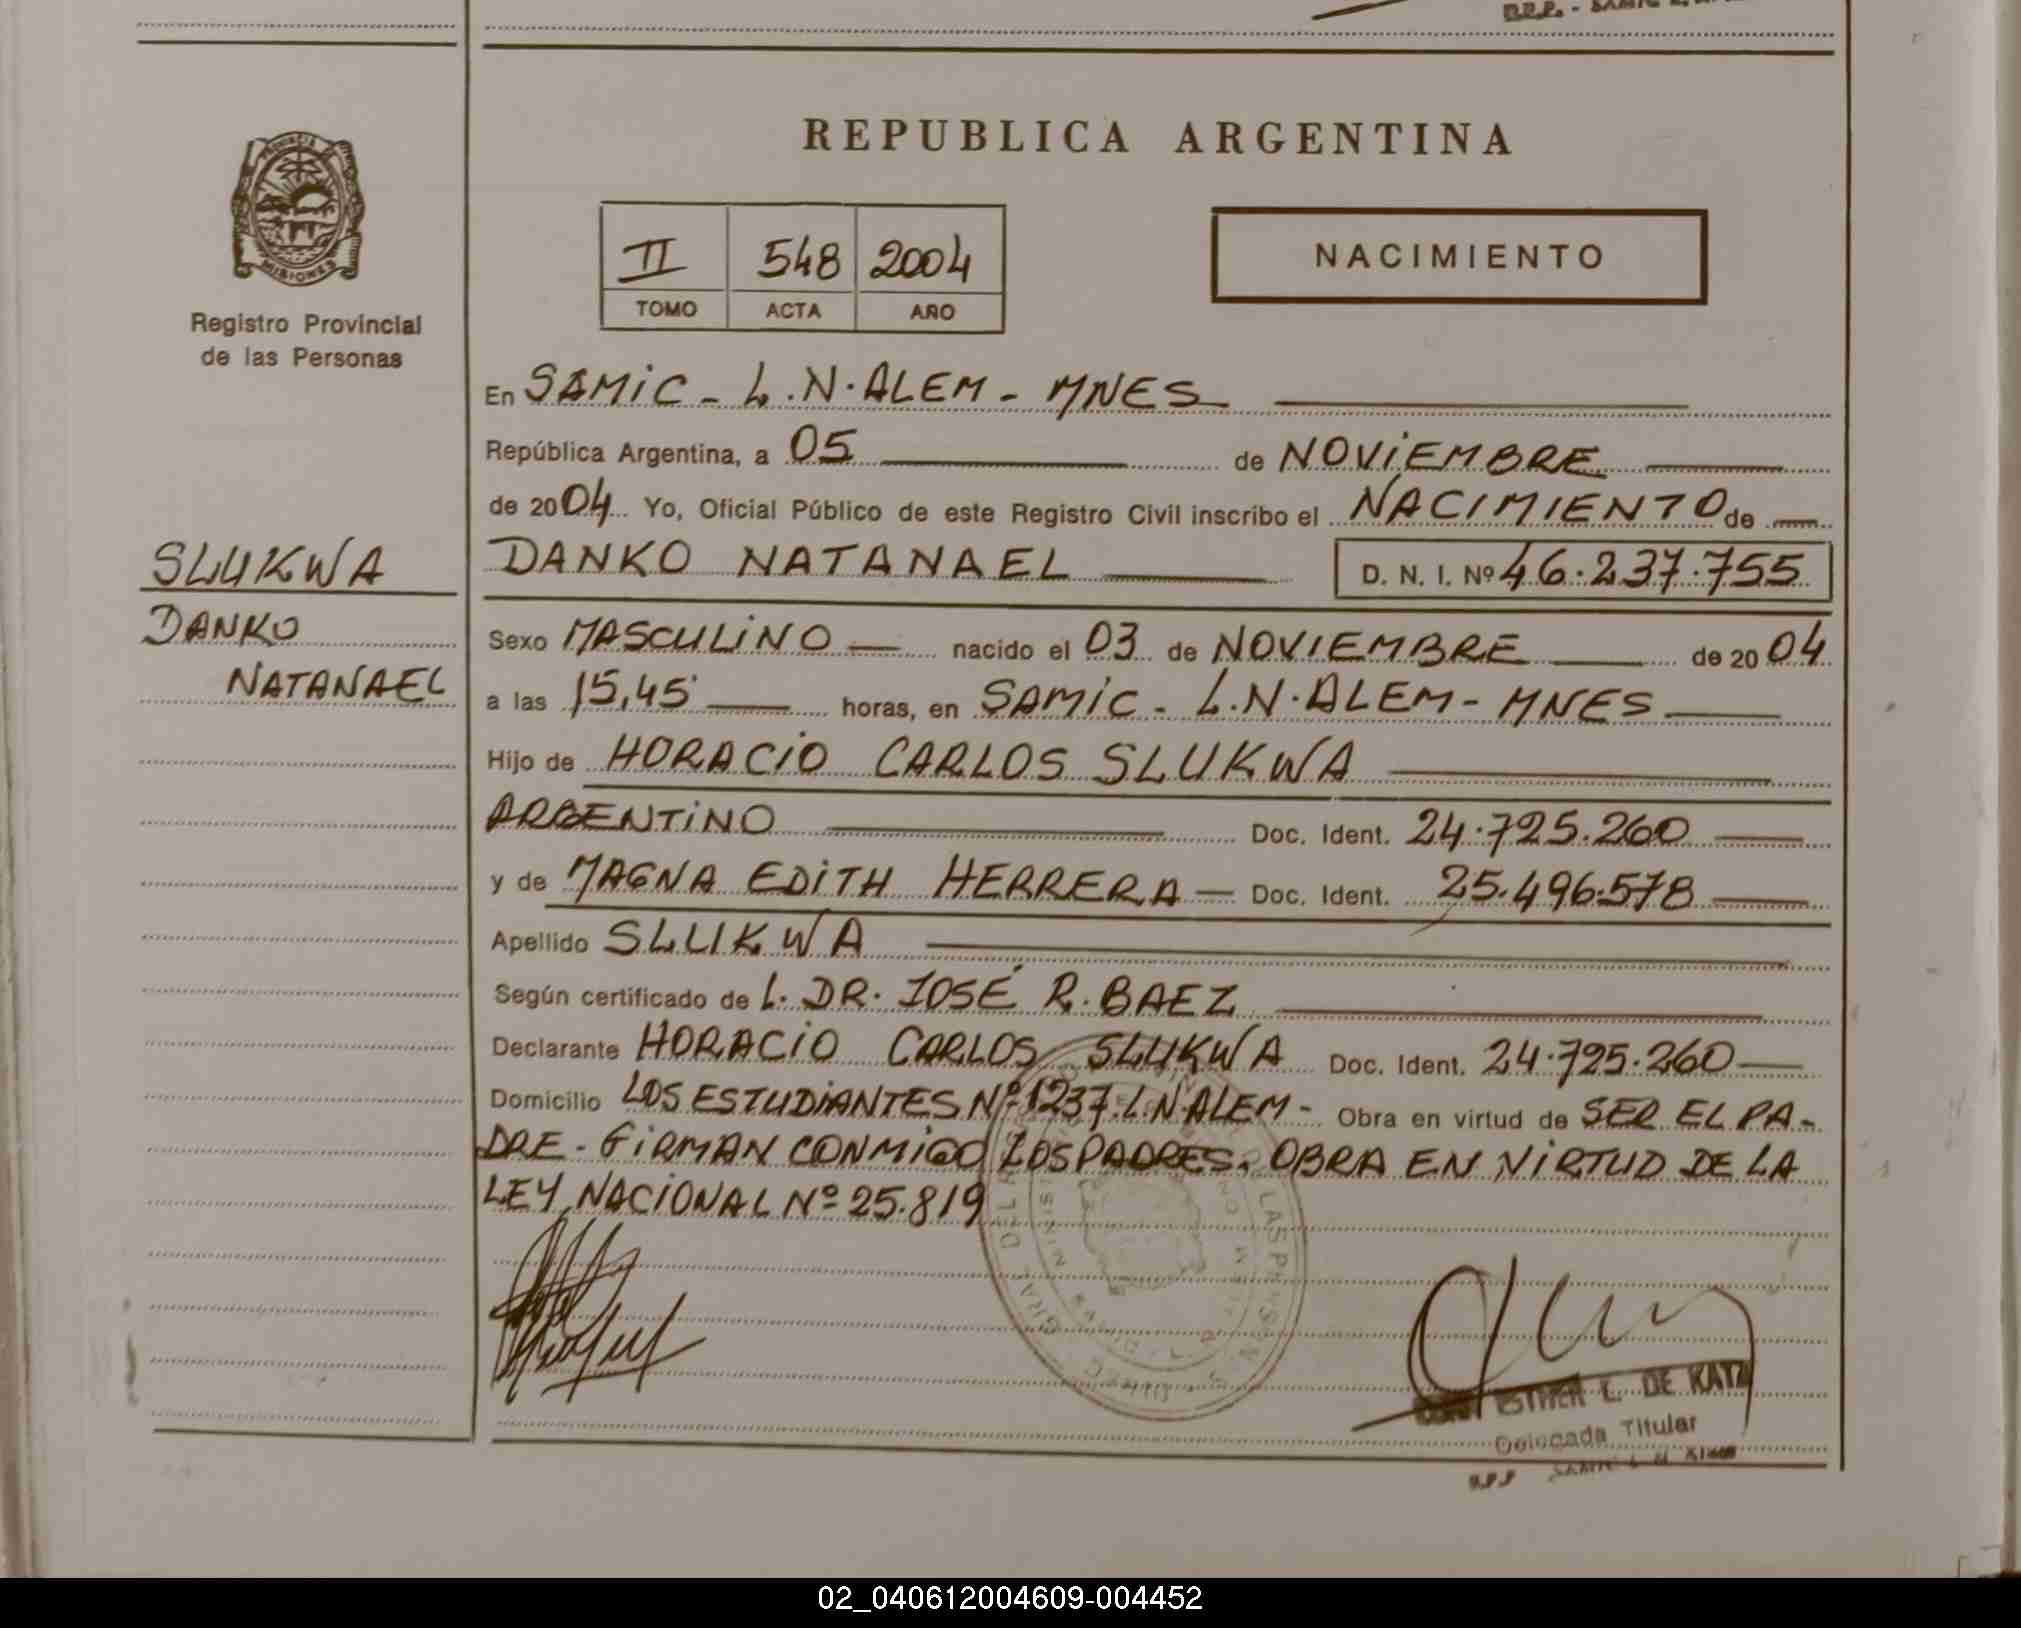 PROVINCIA DE
MISIONES
Registro Provincial
de las Personas
SLUKWA
DANKO
NATANAEL
REPUBLICA ARGENTINA
II 548 2004
TOMO ACTA AÑO
NACIMIENTO
En SAMIC - L.N.ALEM - MNES
República Argentina, a 05 de NOVIEMBRE
de 2004 Yo, Oficial Público de este Registro Civil inscribo el NACIMIENTO de
DANKO NATANAEL D. N. I. Nº 46.237.755
Sexo MASCULINO nacido el 03 de NOVIEMBRE de 2004
a las 15,45 horas, en SAMIC - L.N.ALEM - MNES
Hijo de HORACIO CARLOS SLUKWA
ARGENTINO Doc. Ident. 24.725.260
y de MAGNA EDITH HERRERA Doc. Ident. 25.496.578
Apellido SLUKWA
Según certificado de L. DR. JOSÉ R. BAEZ
Declarante HORACIO CARLOS SLUKWA Doc. Ident. 24.725.260
Domicilio LOS ESTUDIANTES Nº 1237.L.N.ALEM - Obra en virtud de SER EL PA-
DRE - FIRMAN CONMIGO LOS PADRES. OBRA EN VIRTUD DE LA
LEY NACIONAL Nº 25.819
ESTHER L. DE KATZ
Delegada Titular
02_040612004609-004452